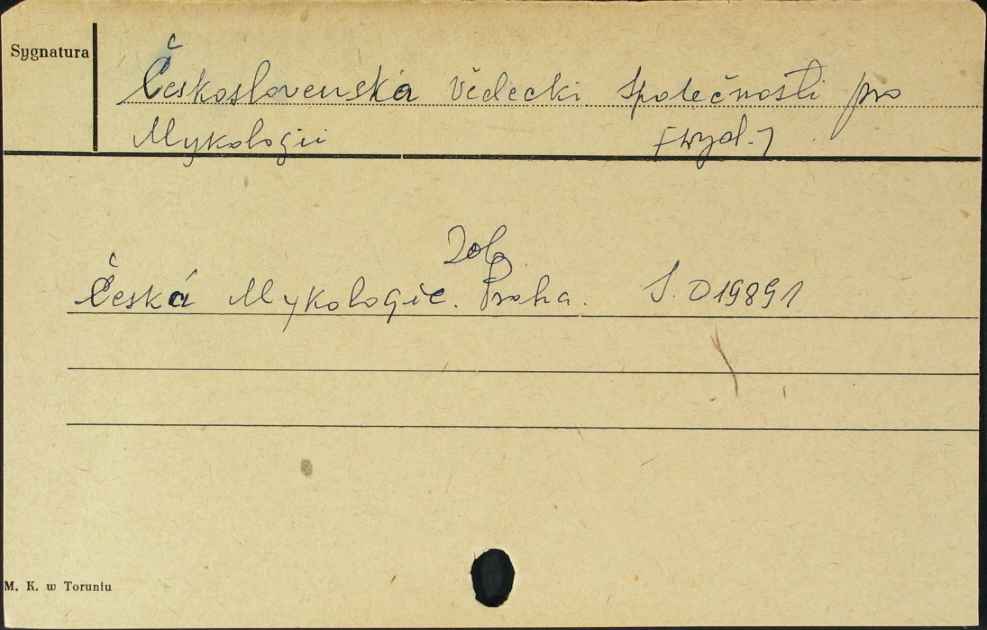 Sygnatura
Československá Vědecki Společnosti pro
Mykologii [wyd.]
Zob.
Česká Mykologie. Praha. S. 019891
M. K. w Toruniu